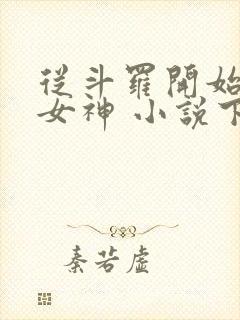 從斗羅開始
女神 小說下
秦若虛